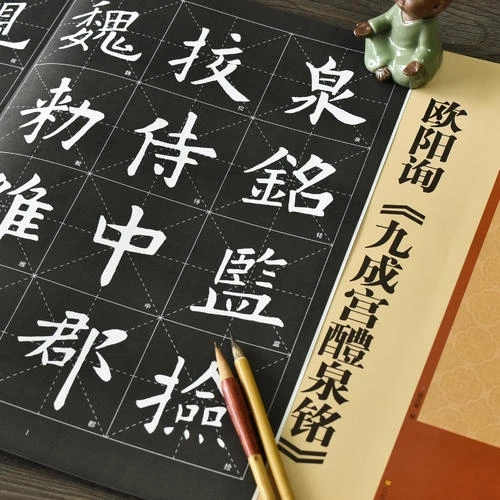 泉銘監撿
挍侍中郡
魏勑唯
欧阳询《九成宫醴泉铭》